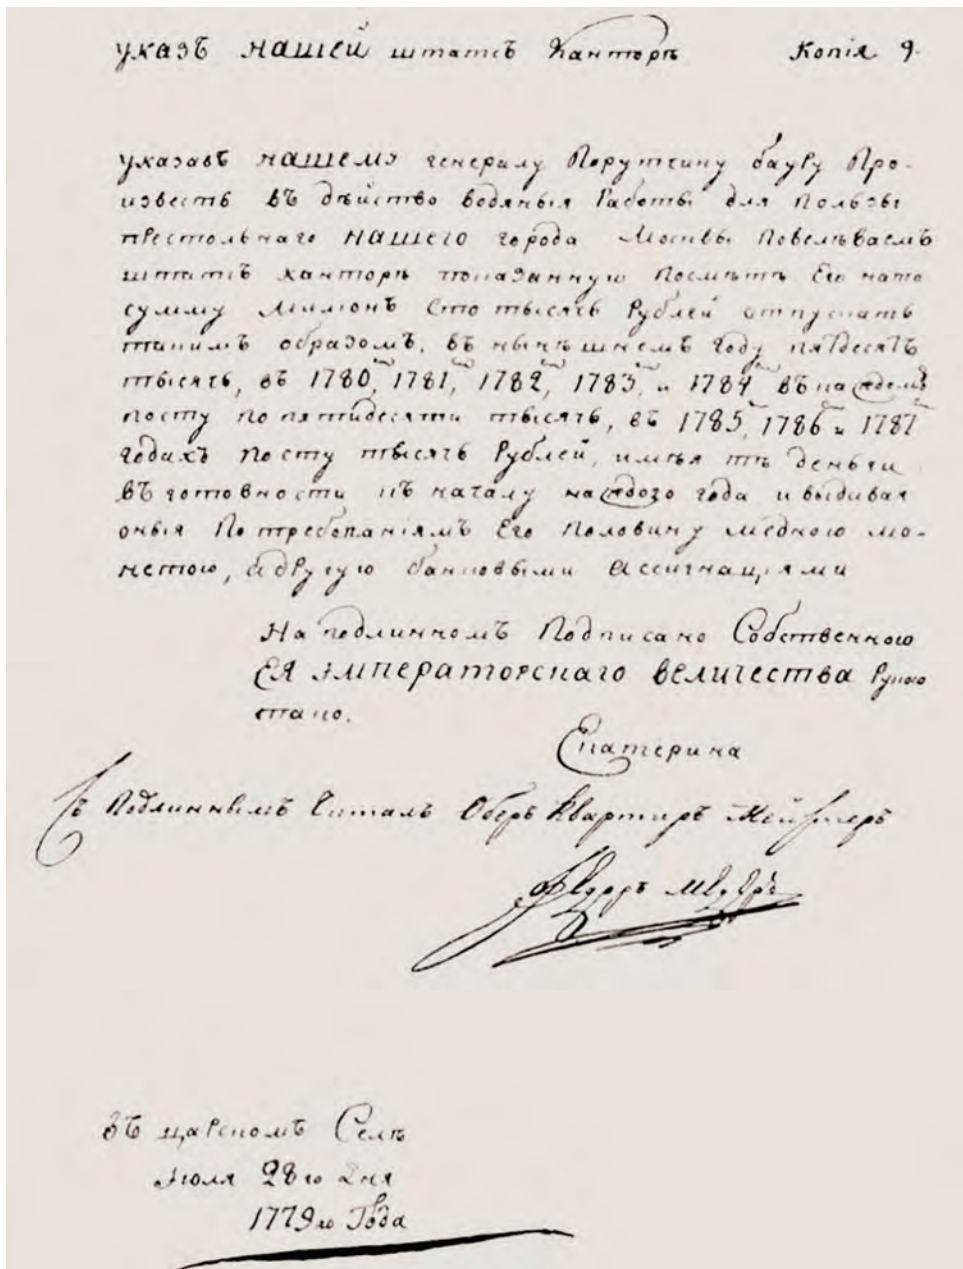 указъ НАШЕЙ штатсъ Канторѣ Копія 9.
указавъ НАШЕМУ генералу Порутчику бауру Про-
известь въ дѣйство водяныя Работы для Пользы
престольнаго НАШЕГО города Москвы Повелѣваемъ
штатсъ канторѣ показанную Посмѣтѣ Его нато
сумму Милионъ Сто тысячь Рублей отпускать
такимъ образомъ, въ нынѣшнемъ году пятдесятъ
тысячь, въ 1780, 1781, 1782, 1783, и 1784 въ каждомъ
посту по пятидесяти тысячь, въ 1785, 1786 и 1787
годахъ по сту тысячь Рублей, имѣя тѣ деньги
въ готовности къ началу каждого года и выдавая
оныя По требованіямъ Его половину медною мо-
нетою, а другую банковыми Ассигнаціями
На подлинномъ Подписано Собственною
ЕЯ ИМПЕРАТОРСКАГО ВЕЛИЧЕСТВА Рукою
тако.
Екатерина
Съ Подлиннымъ Читалъ Оберъ Квартиръ Мейстеръ
Въ царскомъ Селѣ
Июля 28 го Дня
1779 го Года